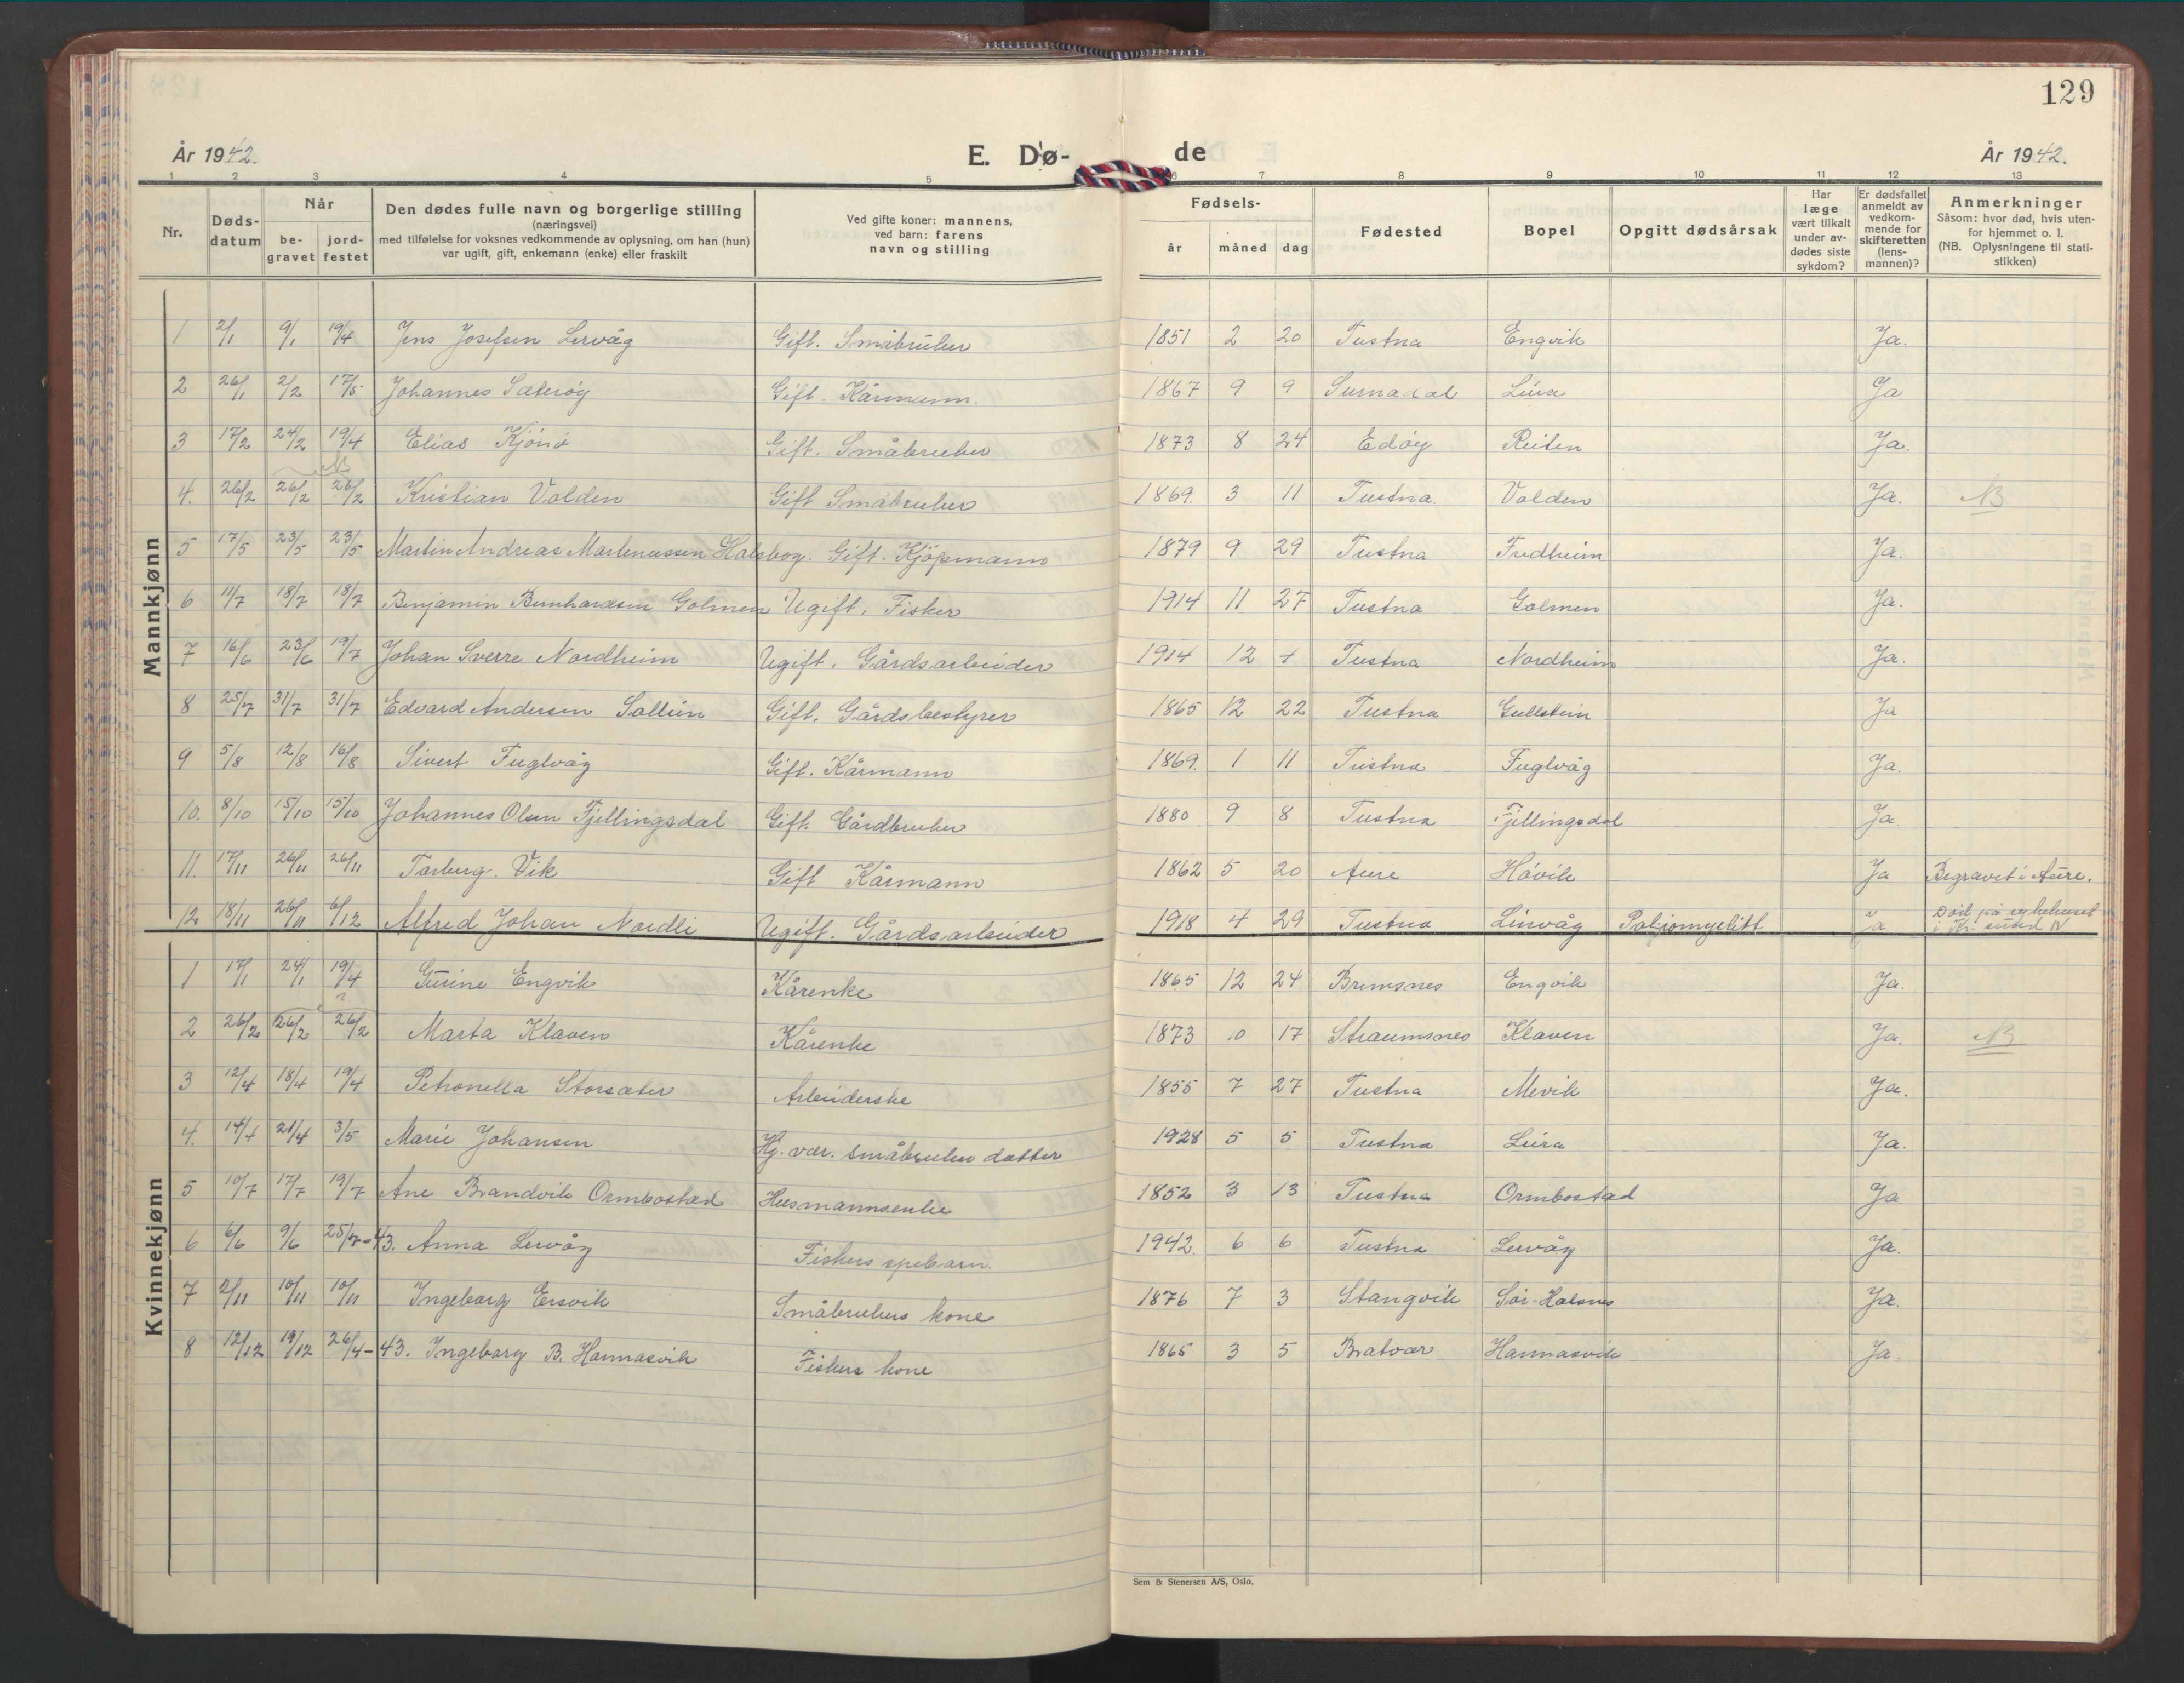 129
År 1942.
E. Dø-
de
År 1942.
1 2 3 4 5 6 7 8 9 10 11 12 13
Nr.
Døds-
datum
Når
be-
gravet
jord-
festet
Den dødes fulle navn og borgerlige stilling
(næringsvei)
med tilføielse for voksnes vedkommende av oplysning, om han (hun)
var ugift, gift, enkemann (enke) eller fraskilt
Ved gifte koner: mannens,
ved barn: farens
navn og stilling
Fødsels-
år måned dag
Fødested
Bopel
Opgitt dødsårsak
Har
læge
vært tilkalt
under av-
dødes siste
sykdom?
Er dødsfallet
anmeldt av
vedkom-
mende for
skifteretten
(lens-
mannen)?
Anmerkninger
Såsom: hvor død, hvis uten-
for hjemmet o. l.
(NB. Oplysningene til stati-
stikken)
Mannkjønn
1 2/1 9/1 19/4 Jens Josefsen Lervåg Gift. Småbruker 1851 2 20 Tustna Engvik Ja.
2 26/1 2/2 17/5 Johannes Sæterøy Gift. Kårmann. 1867 9 9 Surnadal Leira Ja
3 17/2 24/2 19/4 Elias Kjönö Gift. Småbruker 1873 8 24 Edöy Reiten Ja.
4. 26/2 26/2 26/2 Kristian Volden Gift Småbruker 1869. 3 11 Tustna Volden Ja. NB
5 17/5 23/5 23/5 Martin Andreas Martinussen Halsbog. Gift. Kjöpmann 1879 9 29 Tustna Fredheim Ja.
6 11/7 18/7 18/7 Benjamin Bernhardsen Golmen Ugift. Fisker 1914 11 27 Tustna Golmen Ja.
7 16/6 23/6 19/7 Johan Sverre Nordheim Ugift. Gårdsarbeider 1914 12 4 Tustna Nordheim Ja.
8 25/7 31/7 31/7 Edvard Andersen Gift. Gårdsbestyrer 1865 12 22 Tustna Gullstein Ja
9 5/8 12/8 16/8 Sivert Fuglvåg Gift. Kårmann 1869. 1 11 Tustna Fuglvåg Ja.
10. 8/10 15/10 15/10 Johannes Olsen Fjellingsdal Gift. Gårdbruker 1880 9 8 Tustna Fjellingsdal Ja.
11. 17/11 26/11 26/11 Torberg. Vik Gift Kårmann 1862 5 20 Aure Hávik Ja Begravet i Aure.
12 18/11 26/11 6/12 Alfred Johan Nordli Ugift. Gårdsarbeider 1918 4 29 Tustna Linvåg Poliomyelitt Ja Död på sykehuset
i Kr. sund N
Kvinnekjønn
1 17/1 24/1 19/4 Gurine Engvik Kårenke 1865 12 24 Bremsnes Engvik Ja.
2 26/2 26/2 26/2 Marta Klaven Kårenke 1873 10 17 Straumsnes Klaven Ja. NB
3 12/4 18/4 19/4 Petronella Storsæter Arbeiderske 1855 7 27 Tustna Mevik Ja.
4. 14/4 21/4 3/5 Marie Johansen Hj. vær. småbruker datter 1928 5 5 Tustna Leira Ja.
5 10/7 17/7 19/7 Ane Brandvik Ormbostad Husmannsenke 1852 3 13 Tustna Ormbostad Ja
6 6/6 9/6 25/7-43. Anna Lervåg Fiskers spebarn. 1942. 6 6 Tustna Lervåg Ja.
7 2/11 10/11 10/11 Ingeborg Ersvik Småbrukers kone 1876 7 3 Stangvik Sör-Halsnes Ja.
8 12/12 19/12 26/4-43. Ingeborg B. Hannasvik Fiskers kone 1865 3 5 Bratvær Hannasvik Ja.
Sem & Stenersen A/S, Oslo.